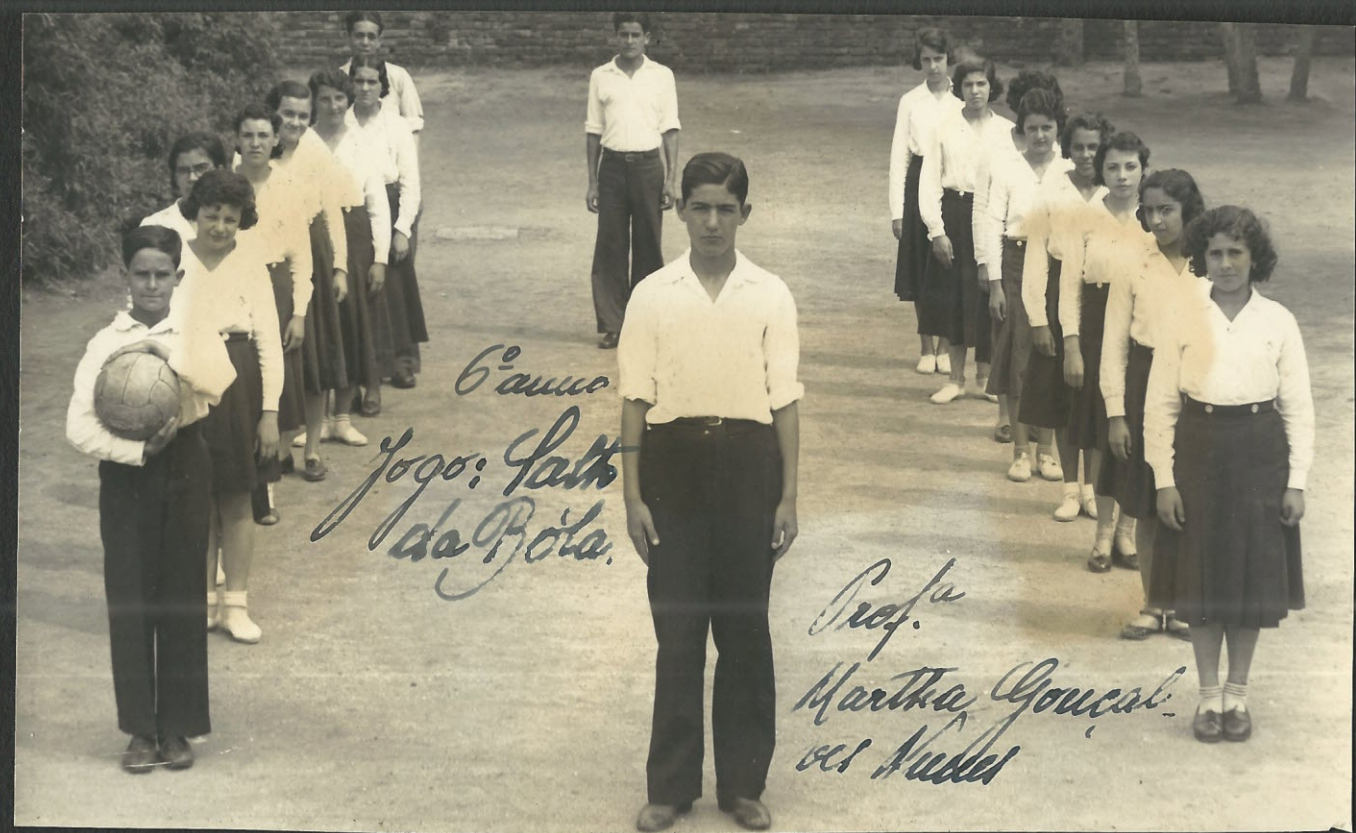 6º anno
Jogo: Salto
da Bóla.
Prof.ª
Martha Gonçal-
ves Nunes